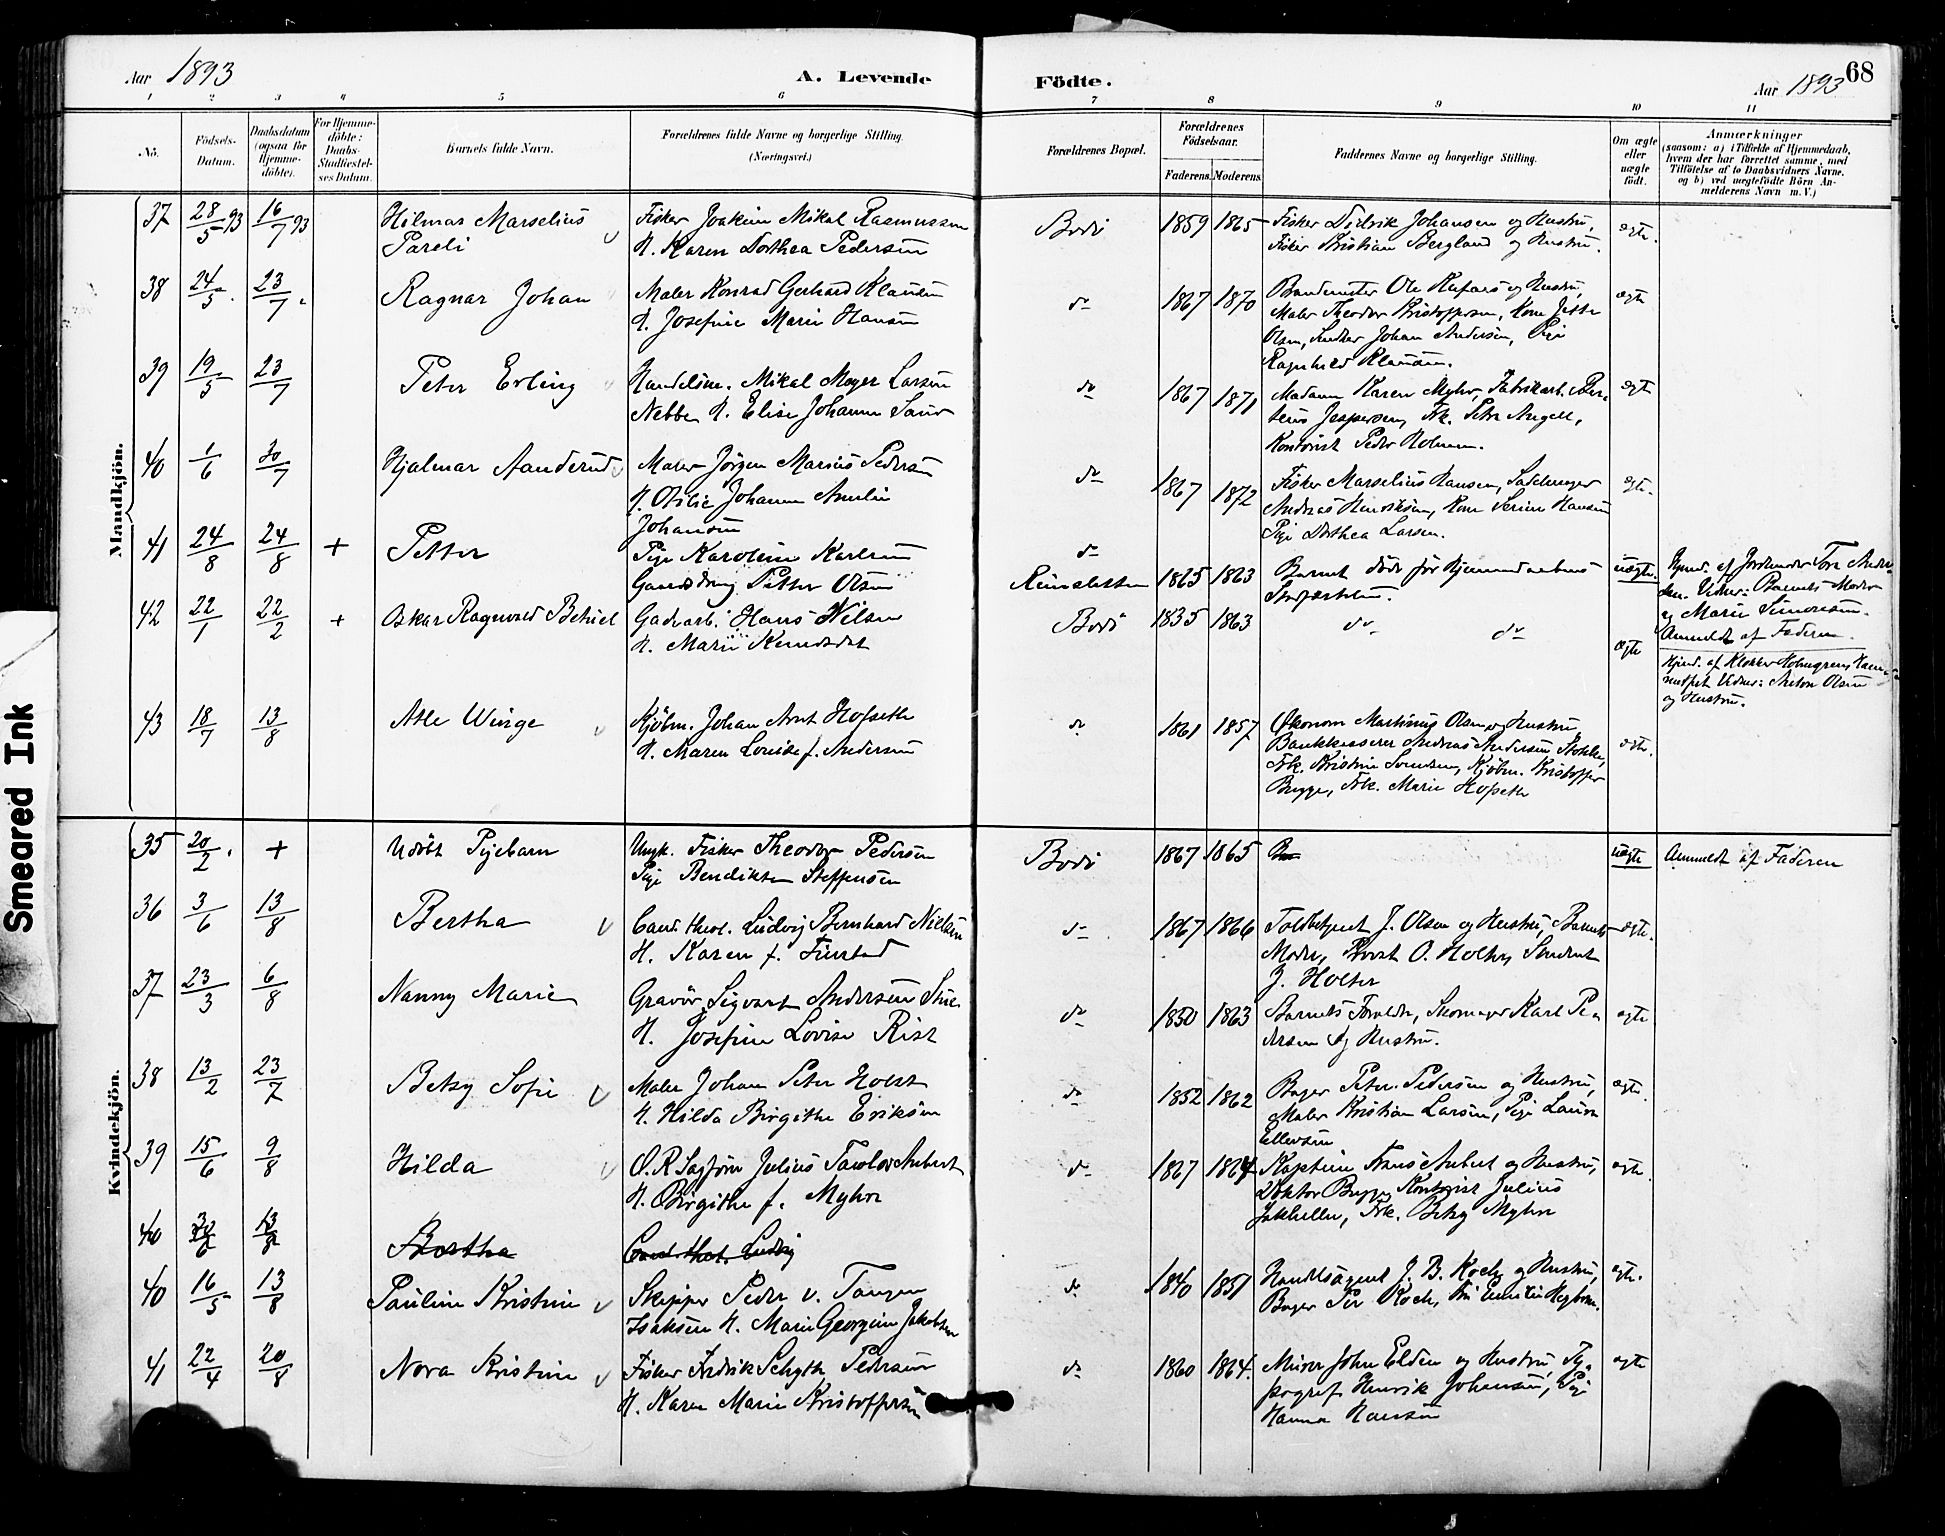 Aar 1893
A. Levende
Födte.
Aar 1893
68
1 2 3 4 5 6 7 8 9 10 11
No.
Födsels-
Datum.
Daabsdatum
(ogsaa for
Hjemme-
döbte).
For Hjemme-
döbte:
Daabs-
Stadfæstel-
ses Datum.
Barnets fulde Navn.
Forældrenes fulde Navne og borgerlige Stilling.
(Næringsvei.)
Forældrenes Bopæl.
Forældrenes
Födselsaar.
Faderens. Moderens.
Faddernes Navne og borgerlige Stilling.
Om ægte
eller
uægte
födt.
Anmærkninger
(saasom: a) i Tilfælde af Hjemmedaab,
hvem der har forrettet samme, med
Tilföielse af to Daabsvidners Navne,
og b) ved uægtefödte Börn An-
melderens Navn m. V.)
Mandkjön.
37 28/5 93 16/7 93 Hilmar Marselius Fisker Joakim Mikal Rasmussen Bodö 1859 1865 Fisker Didrik Johansen og Hustru, ægte.
Pareli H. Karen Dorthea Pedersen Fisker Kristian Bergland og Hustru.
38 24/5 23/7 Ragnar Johan Maler Konrad Gerhard Klausen do 1867 1870 Ole og Hustru, ægte
H. Josefine Marie Hansen Maler Theodor Kristoffersen, Kone Jette
Olsen, Snedker Johan Andersen, Pige
Ragnhild Klausen.
39 19/5 23/7 Peter Erling Handelsm. Mikal Meyer Larsen do 1867 1871 Madam Karen Myhre, Fabrikarb.
Nebbe H. Elise Johanne Jespersen, Frk. Petra Angell,
Kontorist Peder Holmen.
ægte
40 1/6 30/7 Hjalmar Aanderud Maler Jörgen Marius Pedersen do 1867 1872 Fisker Marselius Hansen, ægte.
H. Otilie Johanne Amalie Andreas Henriksen, Kone Serine Hansen
Johansen Pige Dorthea Larsen.
41 24/8 24/8 + Petter Pige Karoline Karlsen do
Gaardsdreng Petter Olsen 1865 1863 Barnet döde för Hjemmedaabens uægte.
Stadfæstelse.
Hjmd. af Jordemoder
Vidner: Barnets Moder
og Marie Simonsen.
Anmeldt af Faderen.
42 22/1 22/2 + Oskar Ragnvald Betuel Gadearb. Hans Nilsen Bodö 1835 1863 do do ægte
H. Marie Knudsdat
Hjmd. af Klokker Holmgren,
Vidner: Anton Olsen
og Hustru.
43 18/7 13/8 Atle Winge Kjöbm. Johan Arnt Hofseth do 1861 1857 Økonom Martinus Olsen og Hustru, ægte.
H. Maren Louise f. Andersen Bankkasserer Andreas Andersen
Frk. Kristine Svendsen, Kjöbm. Kristoffer
Brygge, Frk. Marie Hofseth
Kvindekjön.
35 20/2 + Udöbt Pigebarn Ungk. Fisker Theodor Pedersen Bodö 1867 1865 uægte Anmeldt af Faderen
Pige Bendikte Steffensen
36 3/6 13/8 Bertha Cand. theol. Ludvig Bernhard Nielsen do 1867 1866 Toldbetjent J. Olsen og Hustru, Barnets ægte.
H. Karen f. Finstad Moder, Provst O. Holter, Student
J. Holter
37 23/3 6/8 Nanny Marie Gravör Sigvart Andersen do 1850 1863 Barnets Forældre, Skomager Karl Pe- ægte
H. Josefine Lovise Rist dersen og Hustru.
38 13/2 23/7 Betzy Sofie Maler Johan Peter Holst do 1852 1862 Bager Peter Pedersen og Hustru, ægte.
H. Hilda Birgithe Eriksen Maler Kristian Larsen, Pige Laura
Ellevsen
39 15/6 9/8 Hilda O.R.Sagförer Julius Aubert do 1867 1864 Kaptein Frans Aubert og Hustru, ægte
H. Birgithe f. Myhre Doktor Brygge, Kontorist Julius
Jakhelln, Frk. Betzy Myhre
40 3/6 13/8 Bertha Cand. theol. Ludvig
40 16/5 13/8 Pauline Kristine Skipper Peder v. Tangen do 1840 1851 Handelsagent J. B. Koch og Hustru, ægte.
Isaksen H. Marie Georgine Jakobsen Bager Per Koch,
41 22/4 20/8 Nora Kristine Fisker Fredrik Schytte Pedersen do 1860 1864. Murer John Elden og Hustru, Ty- ægte
H. Karen Marie Kristoffersen pograf Henrik Johansen, Pige
Hanna Hansen
Smeared Ink